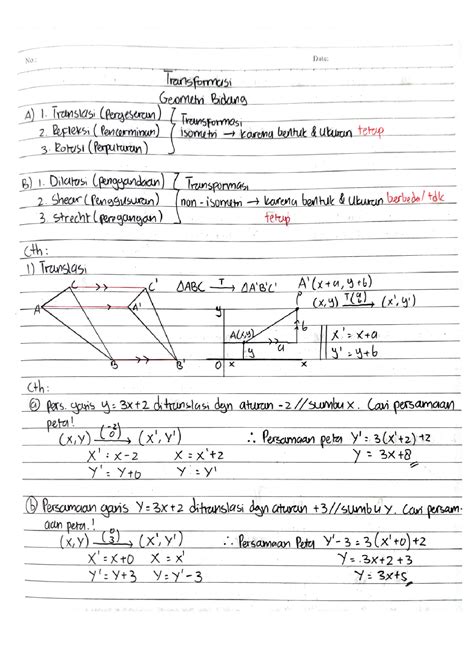 No: Date:
Transformasi
Geometri Bidang
A) 1. Translasi (Pergeseran)
2. Refleksi (Pencerminan)
3. Rotasi (Perputaran)
Transformasi
isometri → karena bentuk & Ukuran tetap
B) 1. Dilatasi (penggandaan)
2. Shear (Penggusuran)
3. Strecht (peregangan)
Transpormasi
non-isometri → karena bentuk & Ukuran berbeda/tdk
tetap
Cth:
1) Translasi
A B C A' B' C'
ΔABC T→ ΔA'B'C' A'(x+a, y+b)
P (x,y) T(a b)→ (x',y')
y A(x,y) b
y a
O x x
x' = x+a
y' = y+b
Cth:
(a) Pers. garis y = 3x+2 ditranslasi dgn aturan -2 // sumbu X. Cari persamaan
peta!
(x,y) (-2 0)→ (x',y') ∴ Persamaan peta y' = 3(x'+2)+2
x' = x-2 x = x'+2 y = 3x+8
y' = y+0 y = y'
(b) Persamaan garis y = 3x+2 ditranslasi dgn aturan +3 // sumbu y. Cari persam-
aan peta.!
(x,y) (0 3)→ (x',y') ∴ Persamaan Peta y'-3 = 3(x'+0)+2
x' = x+0 x = x' y = 3x+2+3
y' = y+3 y = y'-3 y = 3x+5